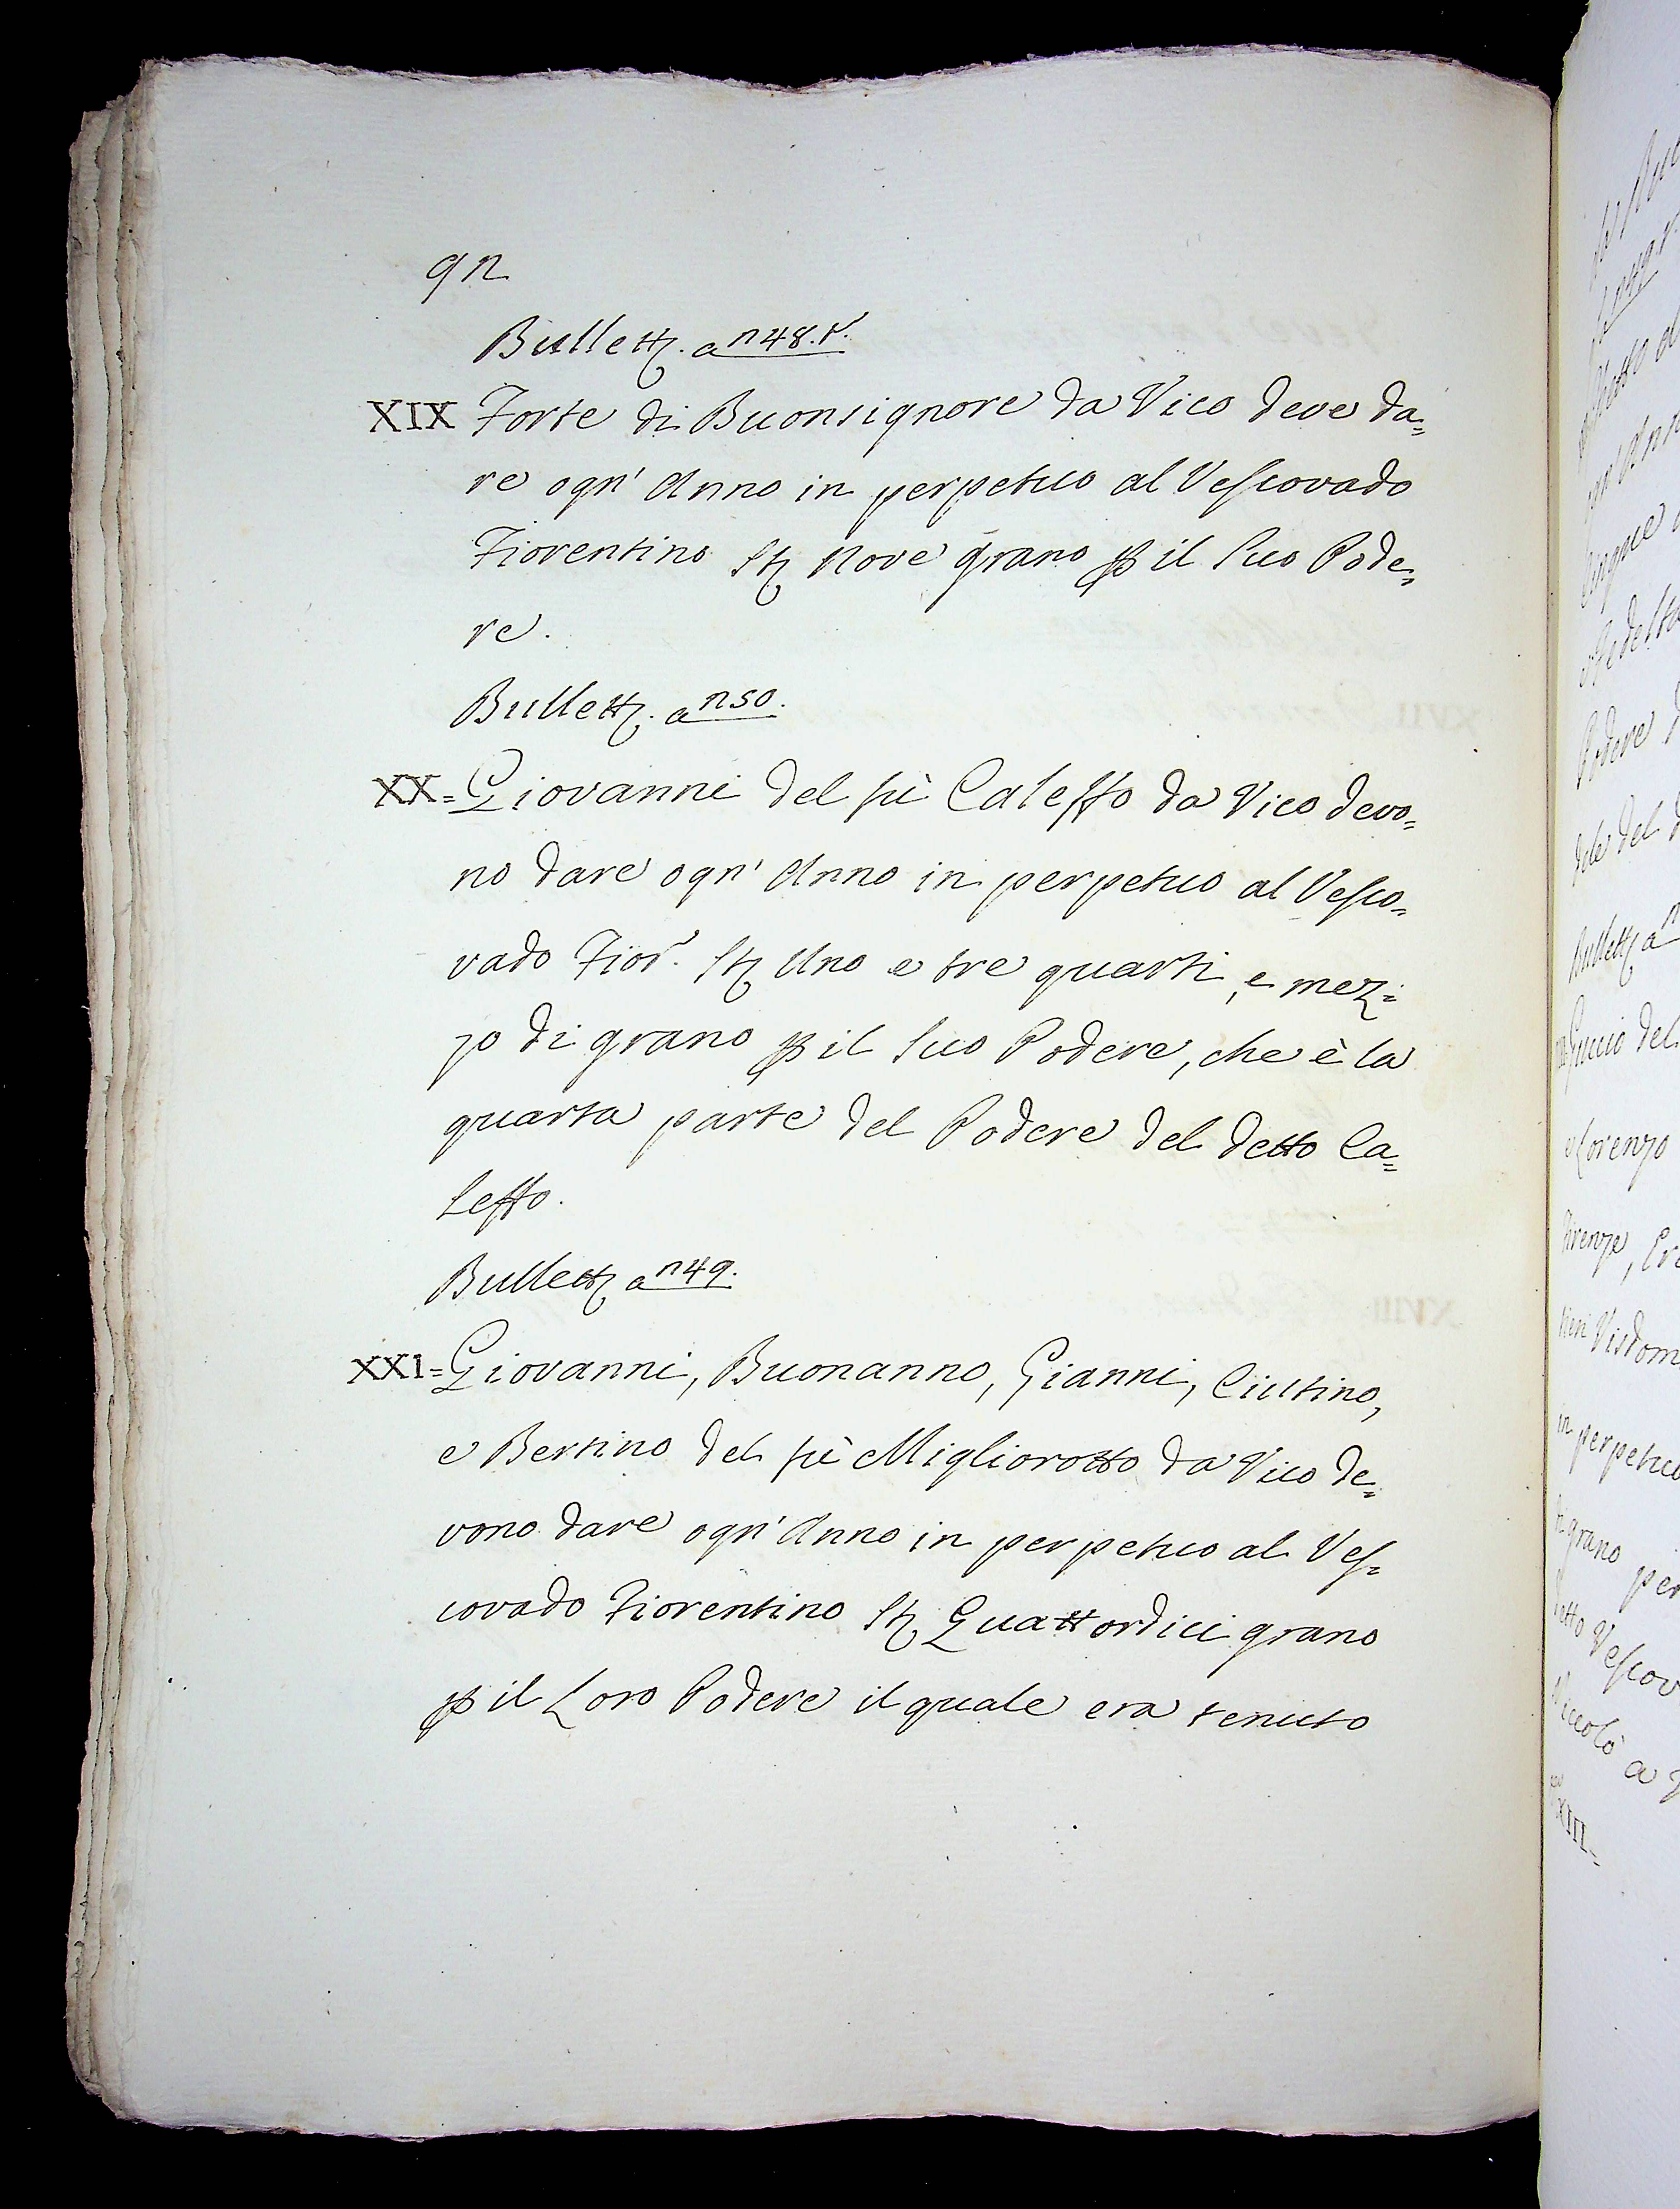 92
Bullett. a n 48. t.
XIX Forte di Buonsignore da Vico deve da=
re ogn' Anno in perpetuo al Vescovado
Fiorentino St. Nove grano p il suo Pode=
re.
Bullett. a n 50.
XX= Giovanni del fù Caleffo da Vico devo=
no dare ogn' Anno in perpetuo al Vesco=
vado Fior. St. Uno e tre quarti, e mez=
zo di grano p il suo Podere, che è la
quarta parte del Podere del detto Ca=
leffo.
Bullett. a n 49.
XXI= Giovanni, Buonanno, Gianni, Ciutino,
e Bertino del fù Migliorotto da Vico de=
vono dare ogn' Anno in perpetuo al Ves=
covado Fiorentino St. Quattordici grano
p il Loro Podere il quale era tenuto